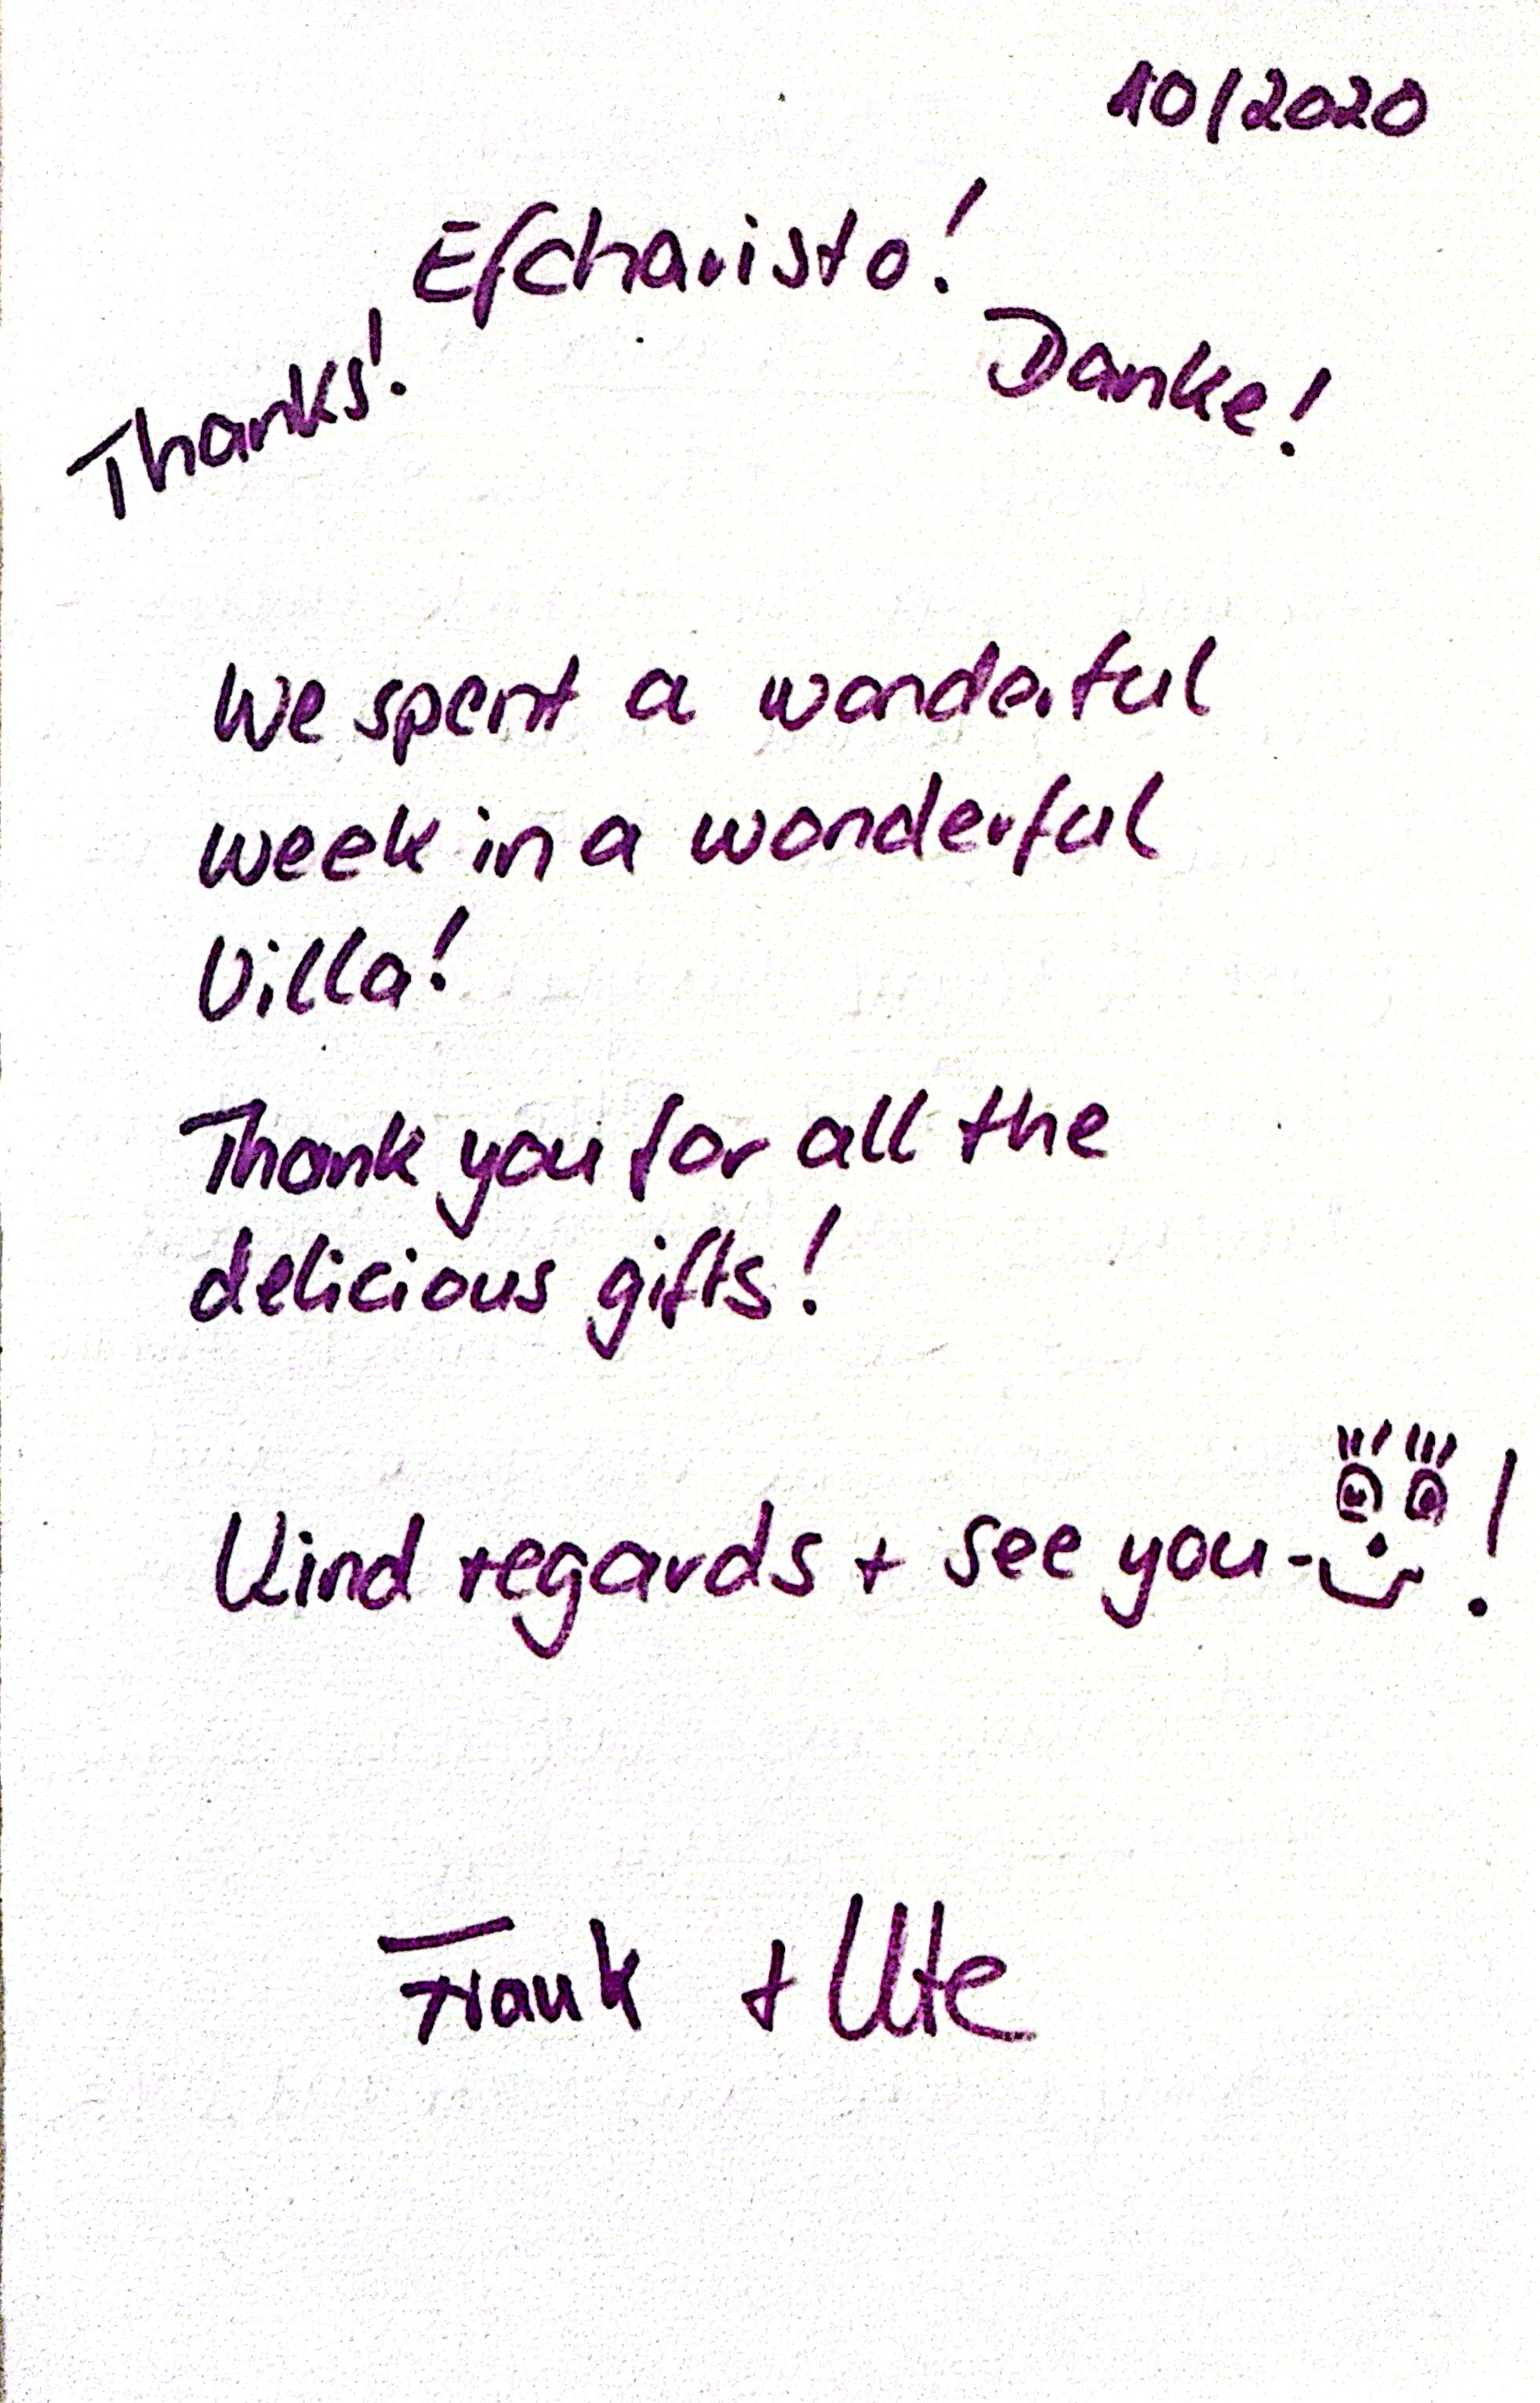 10/2020
Thanks! Efcharisto! Danke!
We spent a wonderful
week in a wonderful
Villa!
Thank you for all the
delicious gifts!
Kind regards + see you - !
Frank + Ute